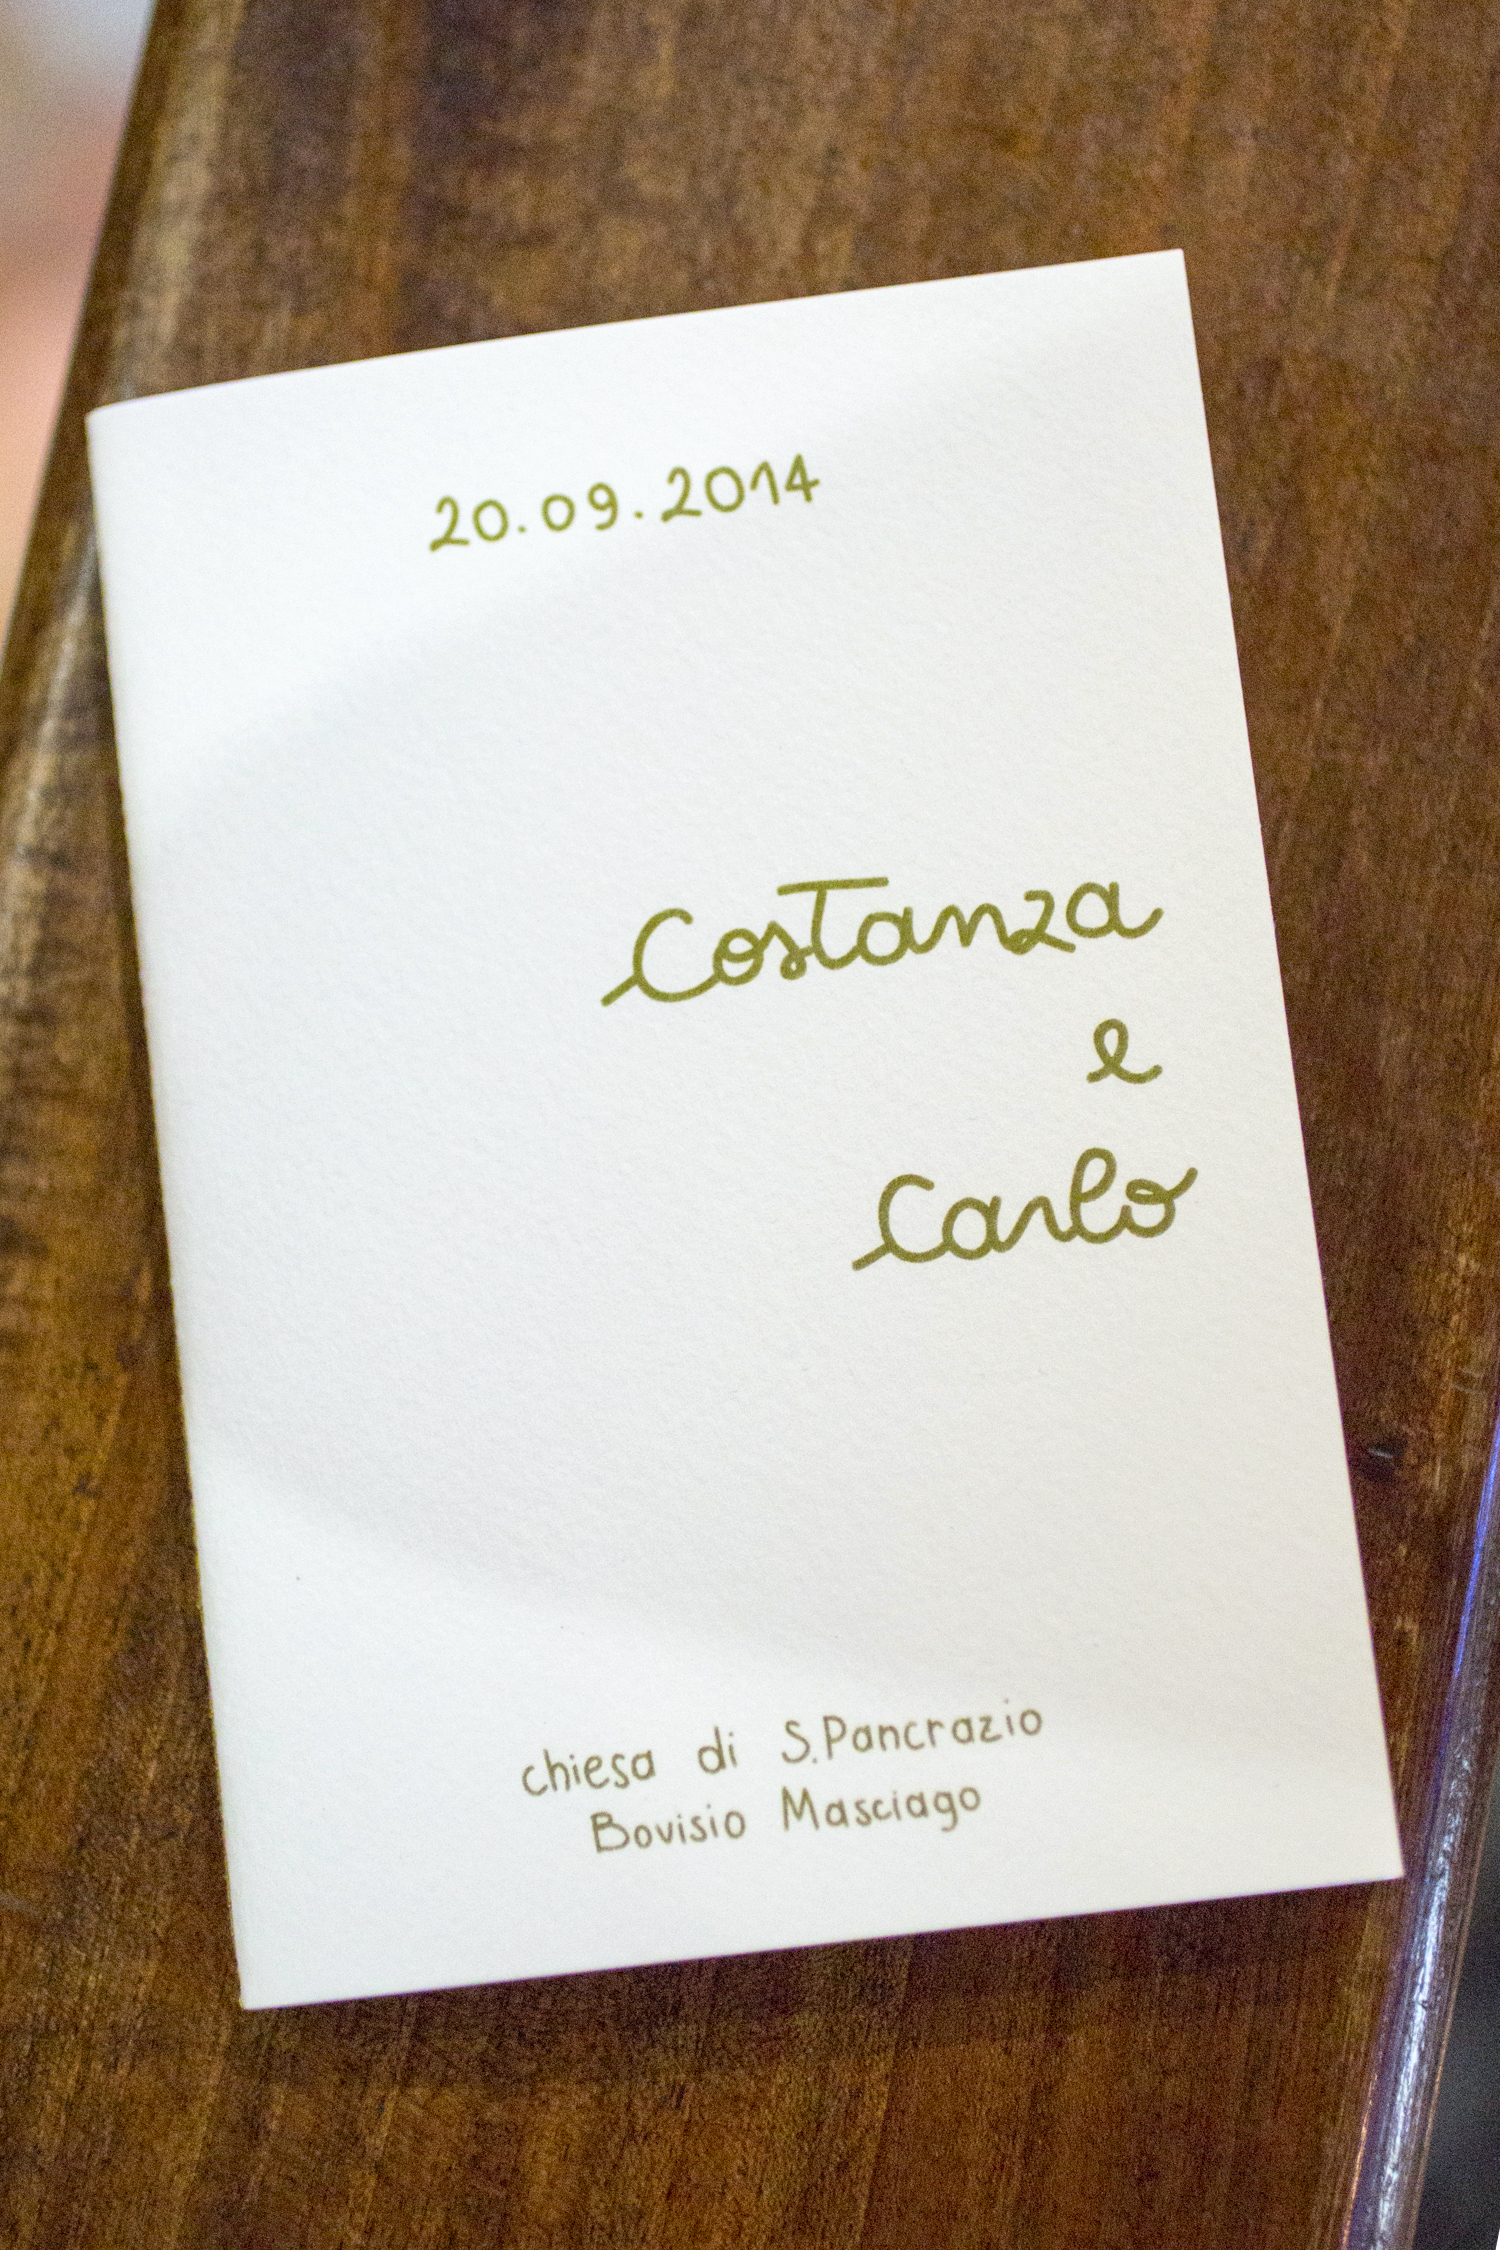 20.09.2014
Costanza
e
Carlo
chiesa di S.Pancrazio
Bovisio Masciago